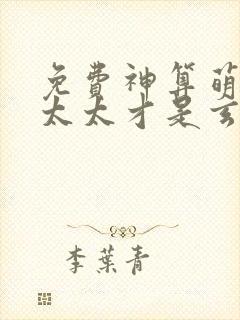 免費神算萌
太太才是玄
李葉青